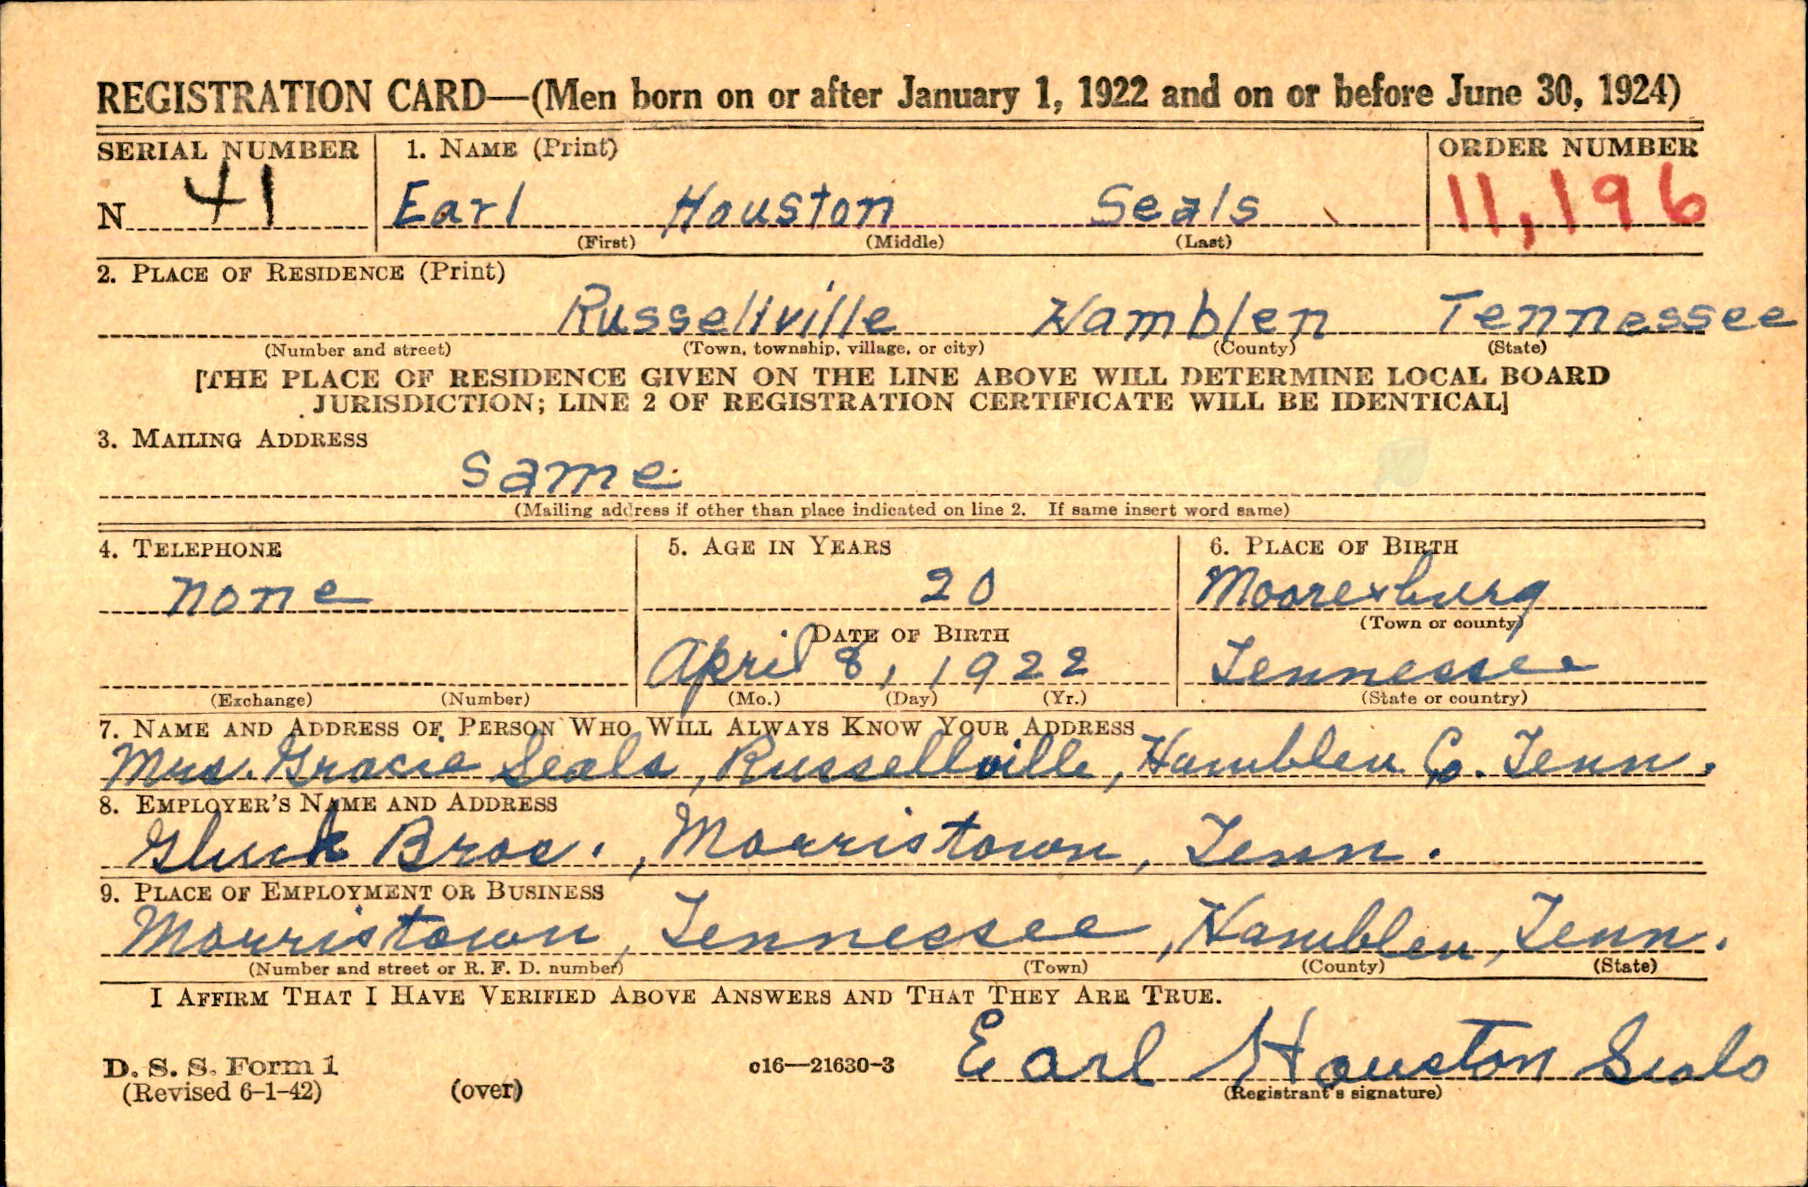 REGISTRATION CARD—(Men born on or after January 1, 1922 and on or before June 30, 1924)
SERIAL NUMBER 1. NAME (Print) ORDER NUMBER
N 41 Earl Houston Seals 11,196
(First) (Middle) (Last)
2. PLACE OF RESIDENCE (Print)
Russellville Hamblen Tennessee
(Number and street) (Town, township, village, or city) (County) (State)
[THE PLACE OF RESIDENCE GIVEN ON THE LINE ABOVE WILL DETERMINE LOCAL BOARD
JURISDICTION; LINE 2 OF REGISTRATION CERTIFICATE WILL BE IDENTICAL]
3. MAILING ADDRESS
same
(Mailing address if other than place indicated on line 2. If same insert word same)
4. TELEPHONE 5. AGE IN YEARS 6. PLACE OF BIRTH
none 20 Mooresburg
DATE OF BIRTH (Town or county)
April 8, 1922 Tennessee
(Exchange) (Number) (Mo.) (Day) (Yr.) (State or country)
7. NAME AND ADDRESS OF PERSON WHO WILL ALWAYS KNOW YOUR ADDRESS
Mrs. Gracie Seals, Russellville, Hamblen Co. Tenn.
8. EMPLOYER'S NAME AND ADDRESS
Gluck Bros., Morristown, Tenn.
9. PLACE OF EMPLOYMENT OR BUSINESS
Morristown, Tennessee, Hamblen, Tenn.
(Number and street or R. F. D. number) (Town) (County) (State)
I AFFIRM THAT I HAVE VERIFIED ABOVE ANSWERS AND THAT THEY ARE TRUE.
Earl Houston Seals
D. S. S. Form 1 c16—21630-3
(Revised 6-1-42) (over) (Registrant's signature)